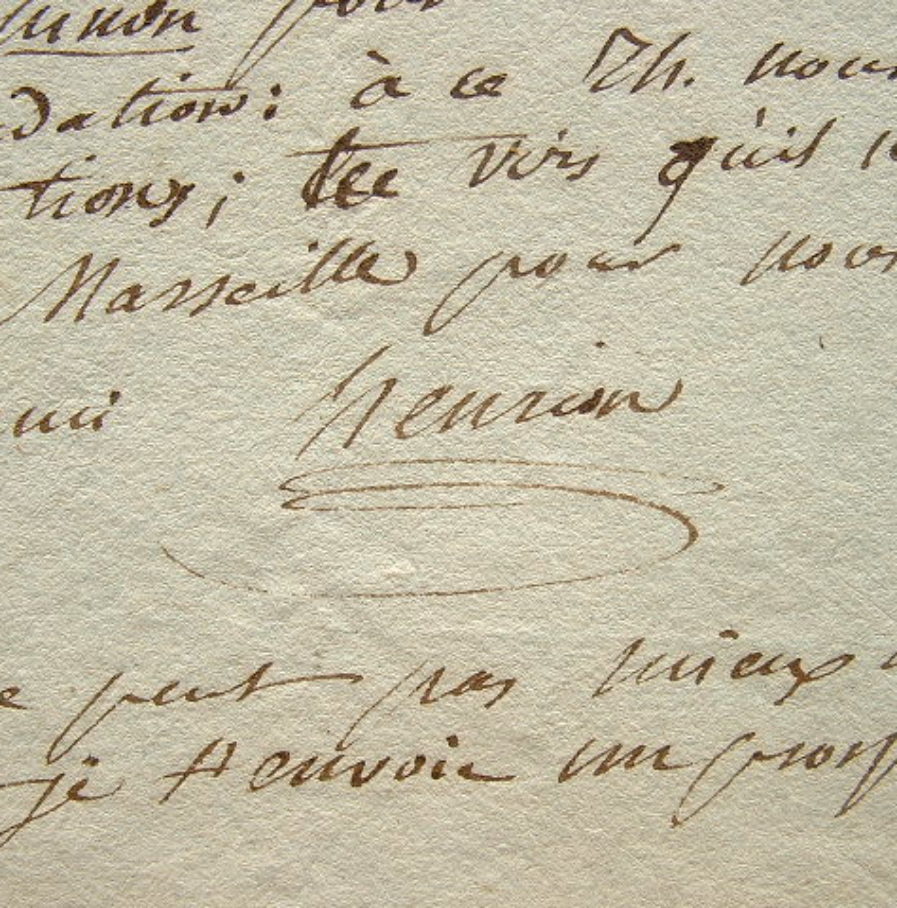 pour
dation: à ce Th. nous
tions; tu vois qu'il
Marseille pour nous
mi Henrion
e peut pas mieux
je t'envoie un prosp